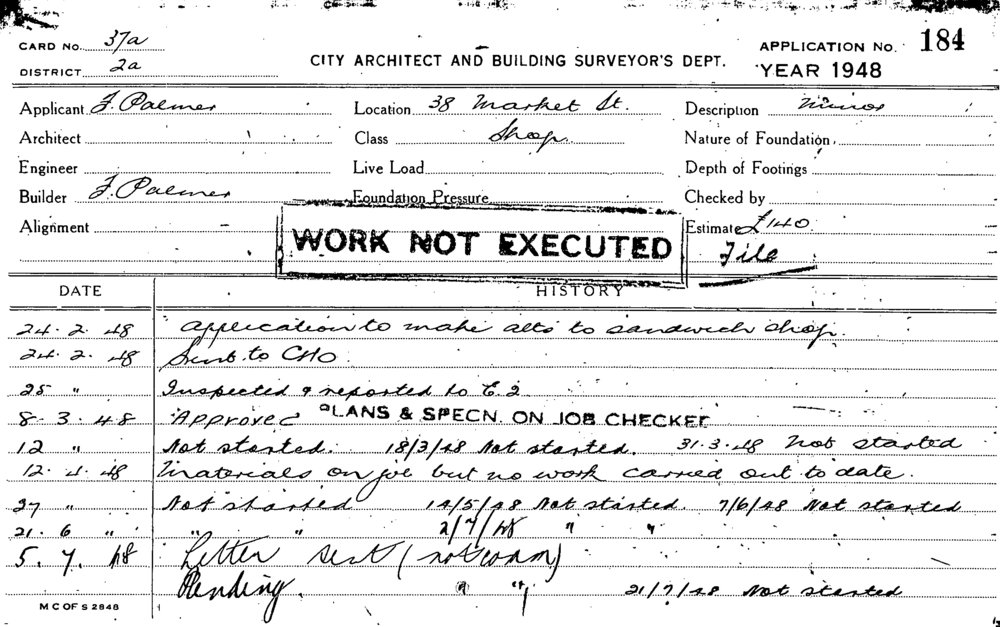 CARD No. 37a
DISTRICT 2a
CITY ARCHITECT AND BUILDING SURVEYOR'S DEPT.
APPLICATION No. 184
YEAR 1948
Applicant F. Palmer Location 38 Market St. Description Minor
Architect Class Shop. Nature of Foundation
Engineer Live Load Depth of Footings
Builder F. Palmer Foundation Pressure Checked by
Alignment Estimate £140
WORK NOT EXECUTED File
DATE HISTORY
24.2.48 Application to make alts to sandwich shop.
24.2.48 Sent to CHO.
25 " Inspected & reported to C.2
8.3.48 Approved PLANS & SPECN. ON JOB CHECKED
12 " Not started. 18/3/48 Not started. 31.3.48 Not started
12.4.48 Materials on job but no work carried out to date.
27 " Not started 14/5/48 Not started. 7/6/48 Not started
21.6 " " " 2/7/48 " "
5.7.48 Letter sent (not comm)
Pending. " " 21/7/48 Not started
M C OF S 2848